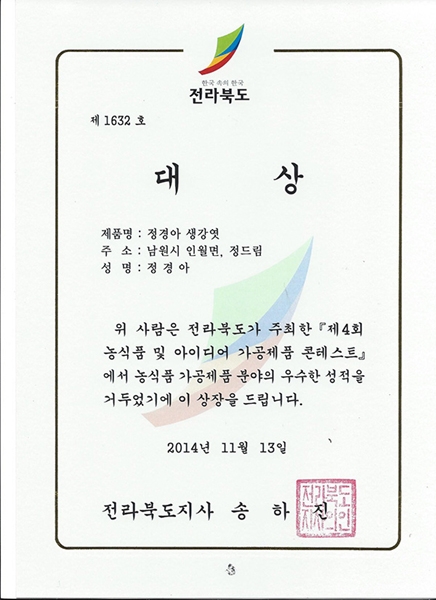 한국 속의 한국
전라북도
제 1632 호
대 상
제품명 : 정경아 생강엿
주 소 : 남원시 인월면, 정드림
성 명 : 정 경 아
위 사람은 전라북도가 주최한 『제4회
농식품 및 아이디어 가공제품 콘테스트』
에서 농식품 가공제품 분야의 우수한 성적을
거두었기에 이 상장을 드립니다.
2014년 11월 13일
전라북도지사 송 하 진
전라북도
지사의인